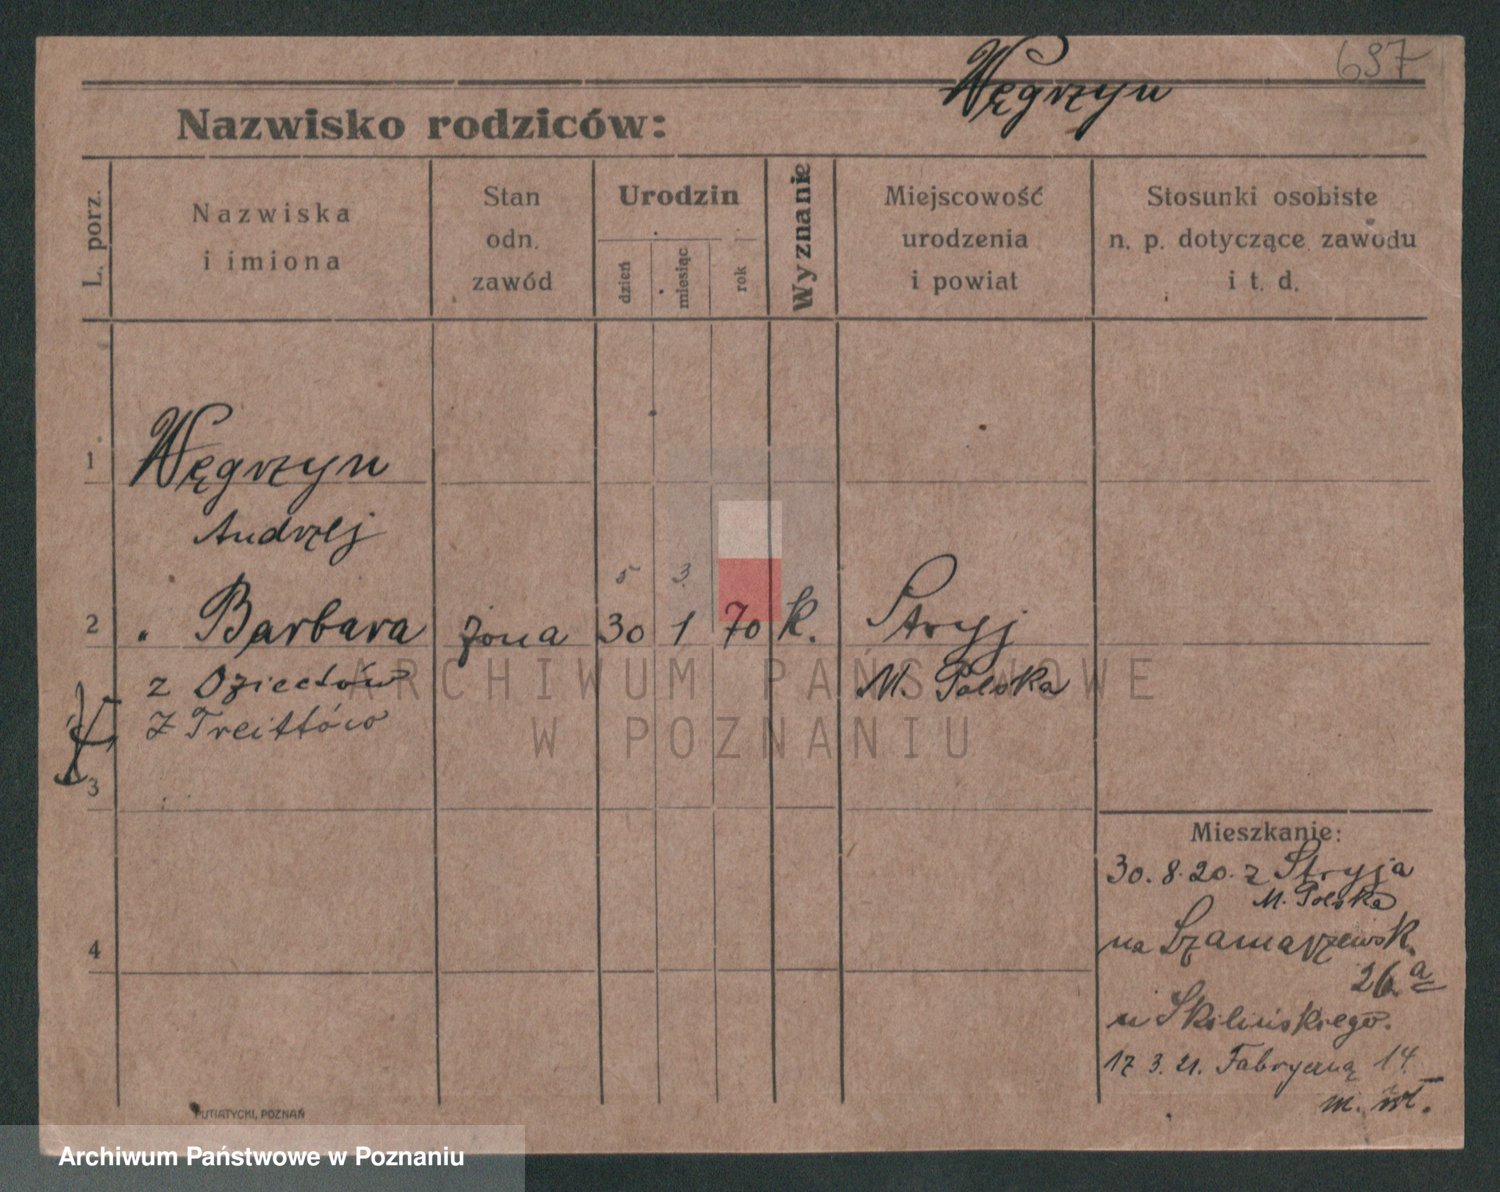 697
Węgrzyn
Nazwisko rodziców:
L. porz.
Nazwiska
i imiona
Stan
odn.
zawód
Urodzin
dzień
miesiąc
rok
Wyznanie
Miejscowość
urodzenia
i powiat
Stosunki osobiste
n. p. dotyczące zawodu
i t. d.
1 Węgrzyn
Andrzej
5 3.
2 " Barbara żona 30 1 70 k. Stryj
z M. Polska
z Treittów
3
4
Mieszkanie:
30. 8. 20. z Stryja
M. Polska
na Szamarzewsk.
26 a
u Skilińskiego.
17 3. 21. Fabryczną 14.
m. wł.
PUTIATYCKI, POZNAŃ
ARCHIWUM PAŃSTWOWE
W POZNANIU
Archiwum Państwowe w Poznaniu